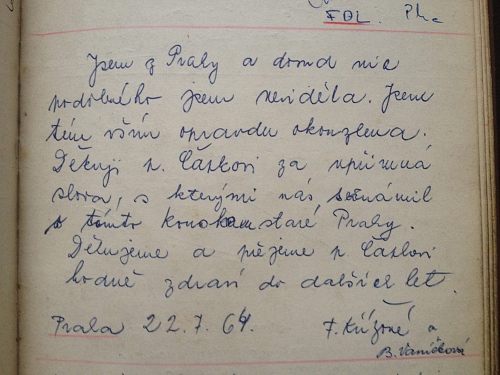 FDL. Pha
Jsem z Prahy a dosud nic
podobného jsem neviděla. Jsem
tím vším opravdu okouzlena.
Děkuji p. Čáskovi za upřímná
slova, s kterými nás seznámil
s tímto kouskem staré Prahy.
Děkujeme a přejeme p. Čáskovi
hodně zdraví do dalších let.
Praha 22.7.64. F. Křížové a
B. Vaníčková